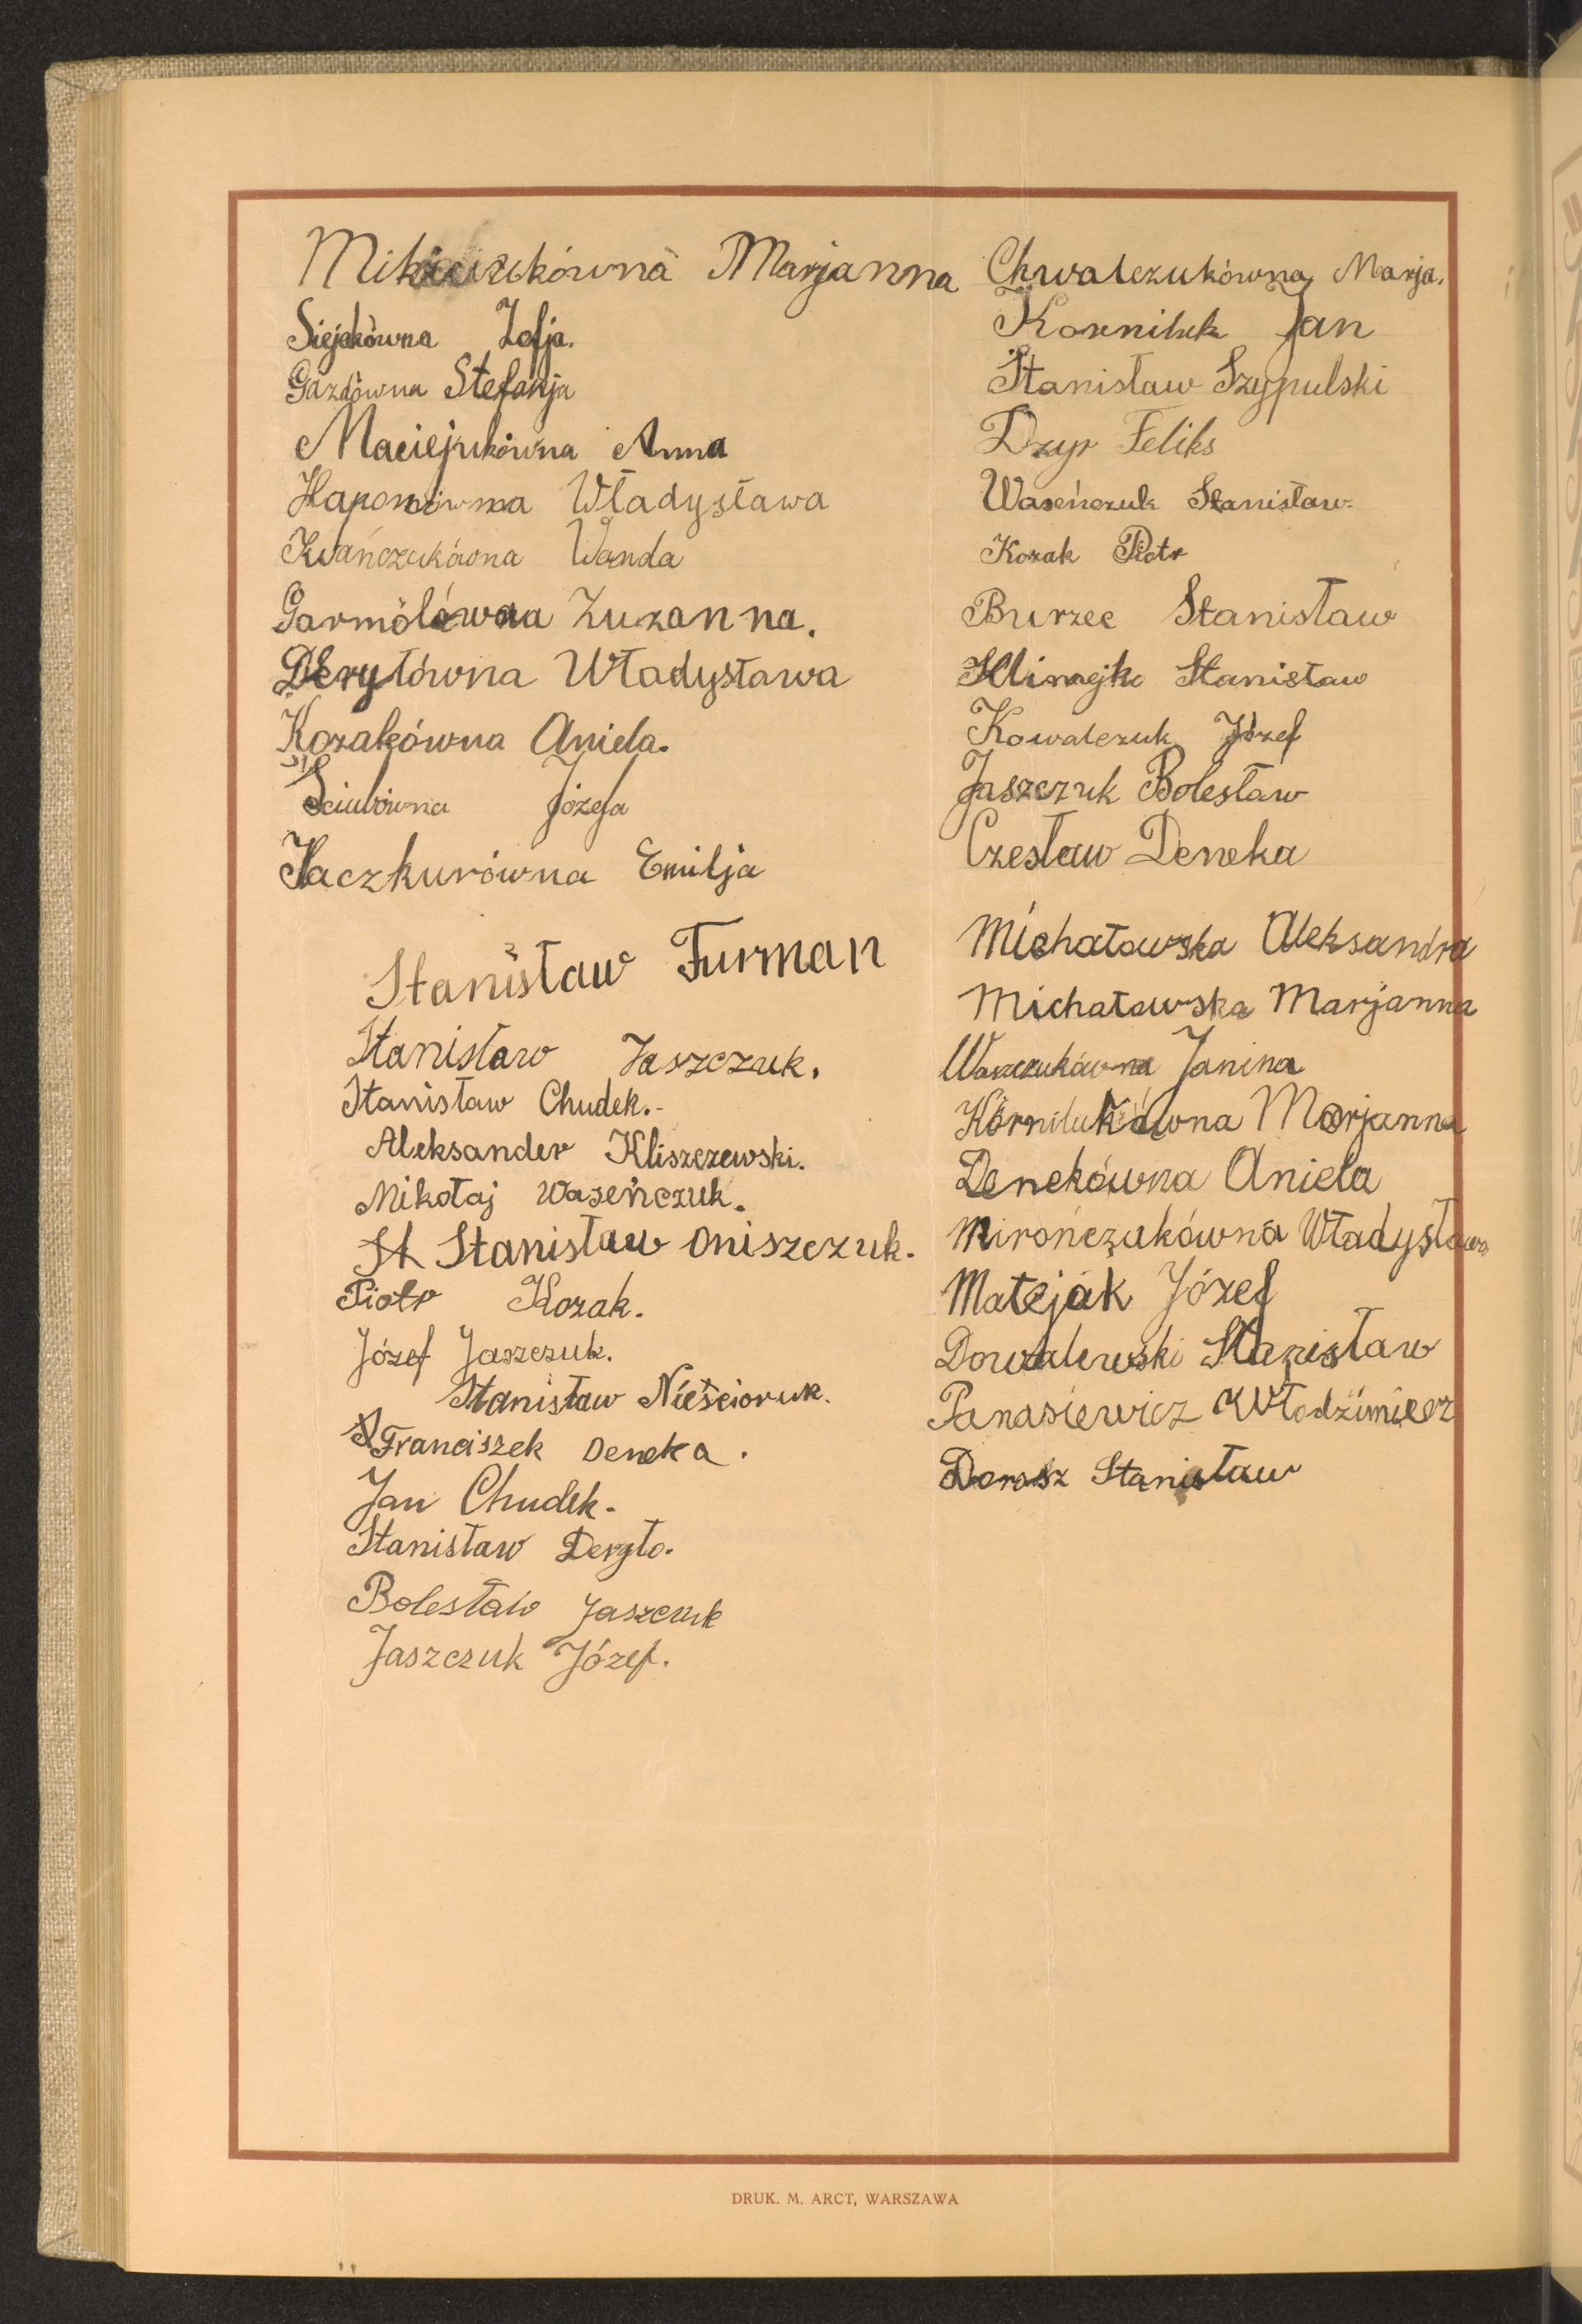 Marjanna
Siejakówna Zofja.
Gazdówna Stefanja
Maciejukówna Anna
Haponówna Władysława
Iwańczukówna Wanda
Garmolówna Zuzanna.
Deryłówna Władysława
Kozakówna Aniela.
Józefa
Haczkurówna Emilja
Stanisław Furman
Stanisław Jaszczuk.
Stanisław Chudek.-
Aleksander Kliszczewski.
Mikołaj Waseńczuk.
St Stanisław Oniszczuk.
Piotr Kozak.
Józef Jaszczuk.
Stanisław Nieścioruk.
Franciszek Deneka.
Jan Chudek.
Stanisław Deryło.
Bolesław Jaszczuk
Jaszczuk Józef.
Chwalczukówna Marja.
Korniluk Jan
Stanisław Szypulski
Dzyr Feliks
Waseńczuk Stanisław
Kozak Piotr
Burzec Stanisław
Klimejko Stanisław
Kowalczuk Józef
Jaszczuk Bolesław
Czesław Deneka
Michałowska Aleksandra
Michałowska Marjanna
Waszczukówna Janina
Kornilukówna Marjanna
Denekówna Aniela
Mirończukówna Władysława
Matejak Józef
Dowalewski Stanisław
Panasiewicz Włodzimierz
Dorosz Stanisław
DRUK. M. ARCT, WARSZAWA